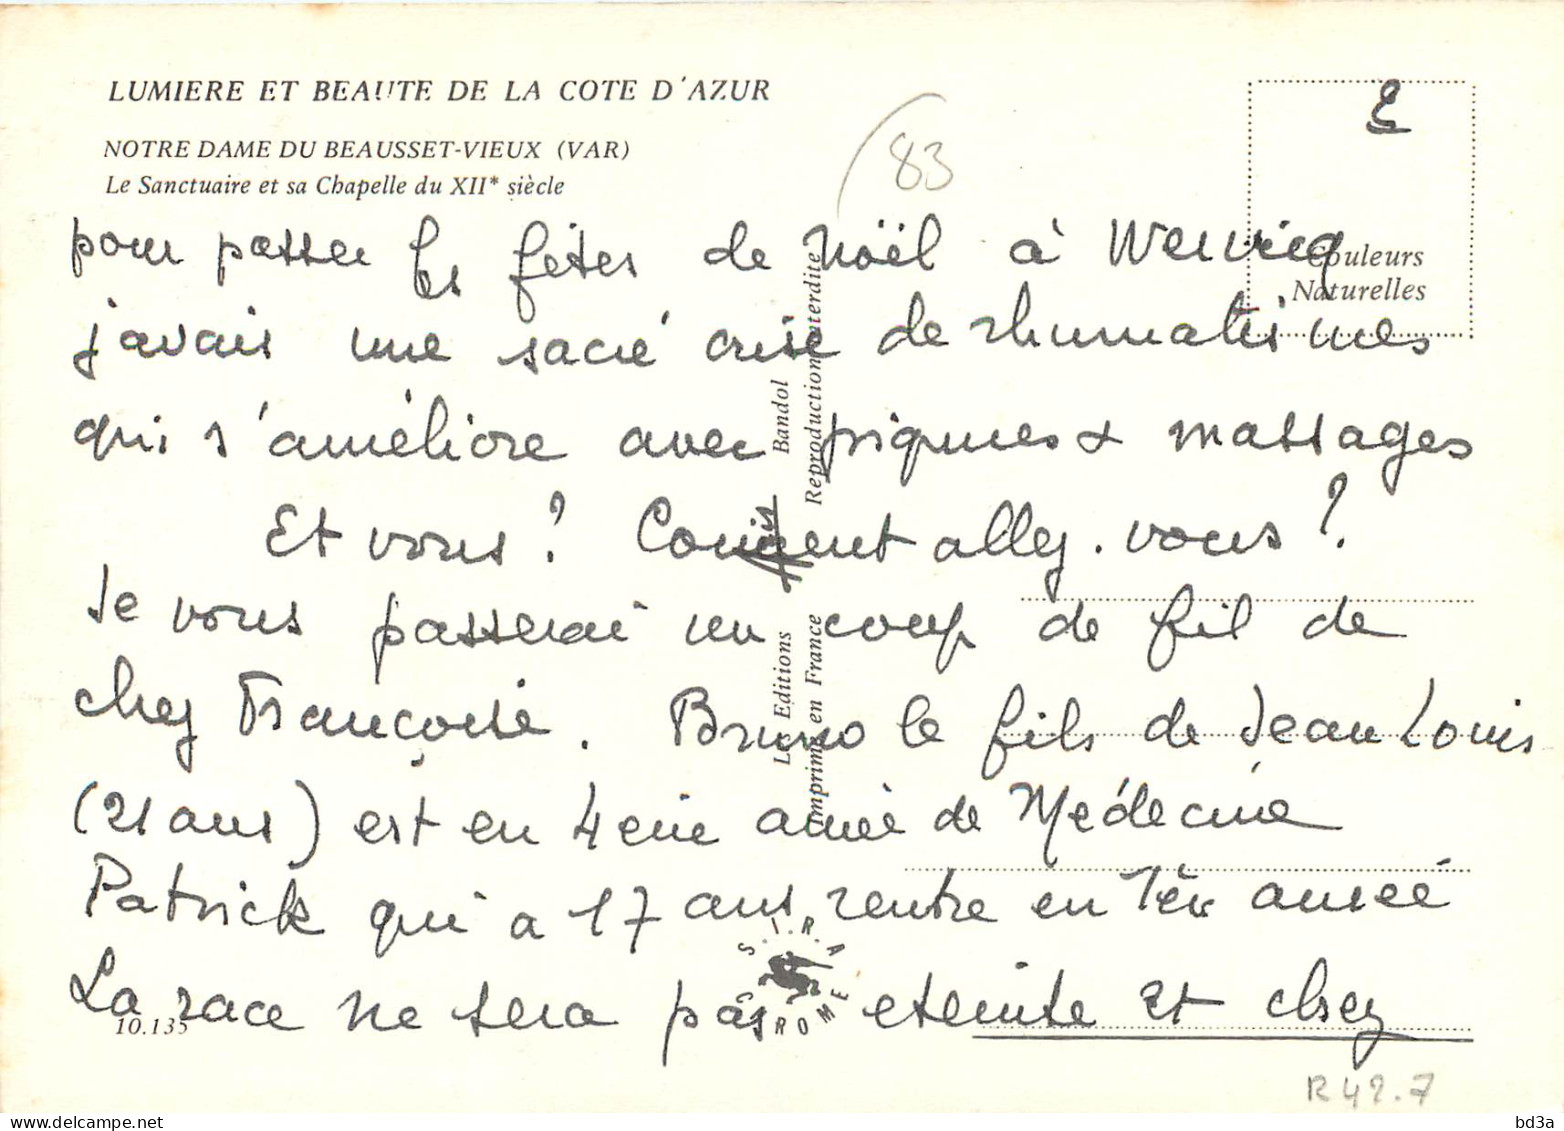 LUMIERE ET BEAUTE DE LA COTE D'AZUR
NOTRE DAME DU BEAUSSET-VIEUX (VAR)
Le Sanctuaire et sa Chapelle du XII* siècle
83
2
Couleurs
Naturelles
pour passer les fêtes de Noël à Wervicq
j'avais une sacré crise de rhumatismes
qui s'améliore avec piqures & massages
Et vous ? Comment allez-vous ?
Je vous passerai un coup de fil de
chez Françoise. Bruno le fils de Jean Louis
(21 ans) est en 4eme année de Médecine
Patrick qui a 17 ans rentre en 1ère année
La race ne sera pas eteinte et chez
Les Editions Bandol
Imprimé en France Reproduction interdite
S.I.R.A
ROME
10.135
R 42.7
bd3a